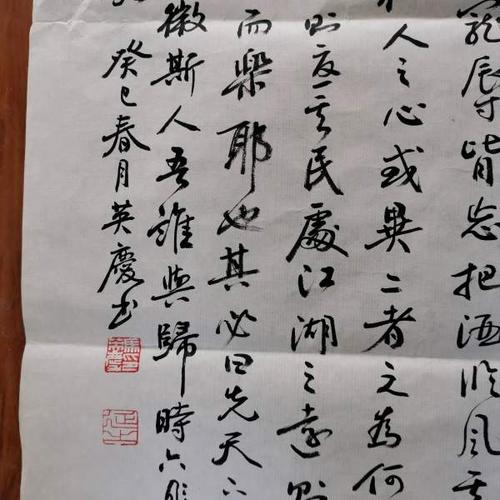 寵辱皆忘把酒临风其
人之心或異二者之為何
則憂其民處江湖之遠則
而樂耶也其必曰先天下
微斯人吾誰與歸時六
癸巳春月英慶书